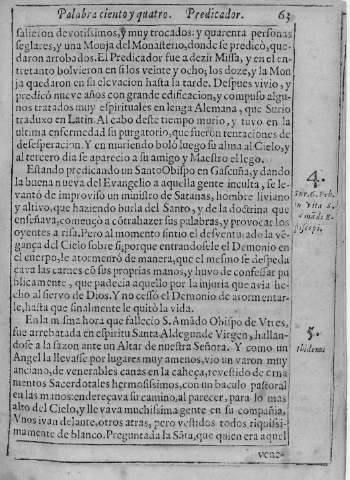 Palabra ciento y quatro. Predicador. 63
salieron deuotissimos, y muy trocados: y quarenta personas
seglares, y una Monja del Monasterio, donde se predicò, que-
daron arrobados. El Predicador fue a dezir Missa, y en el en-
tretanto boluieron en si los veinte y ocho; los doze, y la Mon
ja quedaron en su eleuacion hasta la tarde. Despues viuio, y
predicò nueue años con grande edificacion, y compuso algu-
nos tratados muy espirituales en lenga Alemana, que Surio
traduxo en Latin. Al cabo deste tiempo murio, y tuvo en la
ultima enfermedad su purgatorio, que fueron tentaciones de
desesperacion. Y en muriendo bolò luego su alma al Cielo, y
al tercero dia se aparecio a su amigo y Maestro el lego.
Estando predicando un Santo Obispo en Gascuña, y dando
la buena nueua del Euangelio a aquella gente inculta, se le-
vantò de improviso un ministro de Satanas, hombre liviano
y altivo, que haziendo burla del Santo, y de la doctrina que
enseñava, começò a cõtrahazer sus palabras, y provocar los
oyentes a risa. Pero al momento sintio el desventurado la vẽ
gança del Cielo sobre si; porque entrandosele el Demonio en
el cuerpo, le atormentò de manera, que el mesmo se despeda
çava las carnes cõ sus proprias manos, y huvo de confessar pu
blicamente, que padecia aquello por la injuria que avia he-
cho al siervo de Dios. Y no cessò el Demonio de atormentar-
le, hasta que finalmente le quitò la vida.
4.
En la misma hora que fallecio S. Amãdo Obispo de
fue arrebatada en espiritu Santa Aldegunde Virgen, hallan-
dose a la sazon ante un Altar de nuestra Señora. Y como un
Angel la llevasse por lugares muy amenos, vio un varon muy
anciano, de venerables canas en la cabeça, revestido de orna
mentos Sacerdotales hermosissimos, con un baculo pastoral
en las manos: endereçava su camino, al parecer, para lo mas
alto del Cielo, y llevava muchissima gente en su compañia,
Unos ivan delante, otros atras, pero vestidos todos riquissi-
mamente de blanco. Preguntada la Sãta, que quien era aquel
5.
Ibidem
vene-